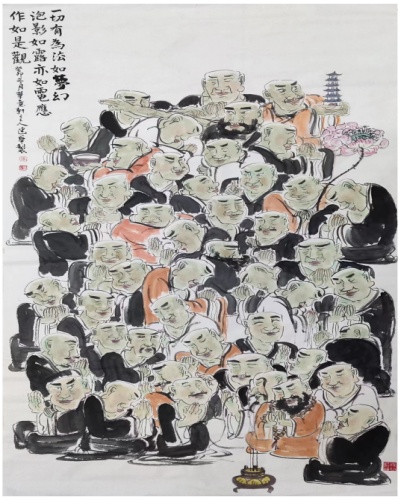 一切有為法如夢幻
泡影如露亦如電應
作如是觀